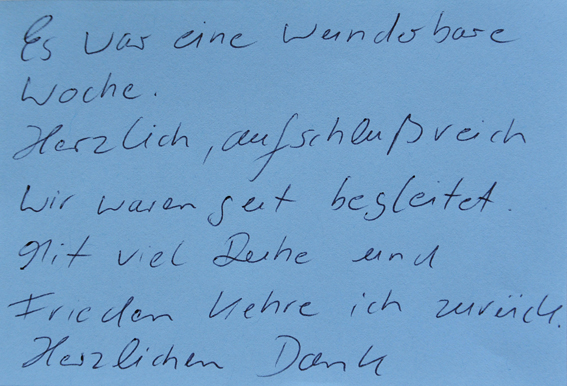 Es war eine wunderbare
Woche.
Herzlich, aufschlußreich
Wir waren gut begleitet.
Mit viel Ruhe und
Frieden kehre ich zurück.
Herzlichen Dank